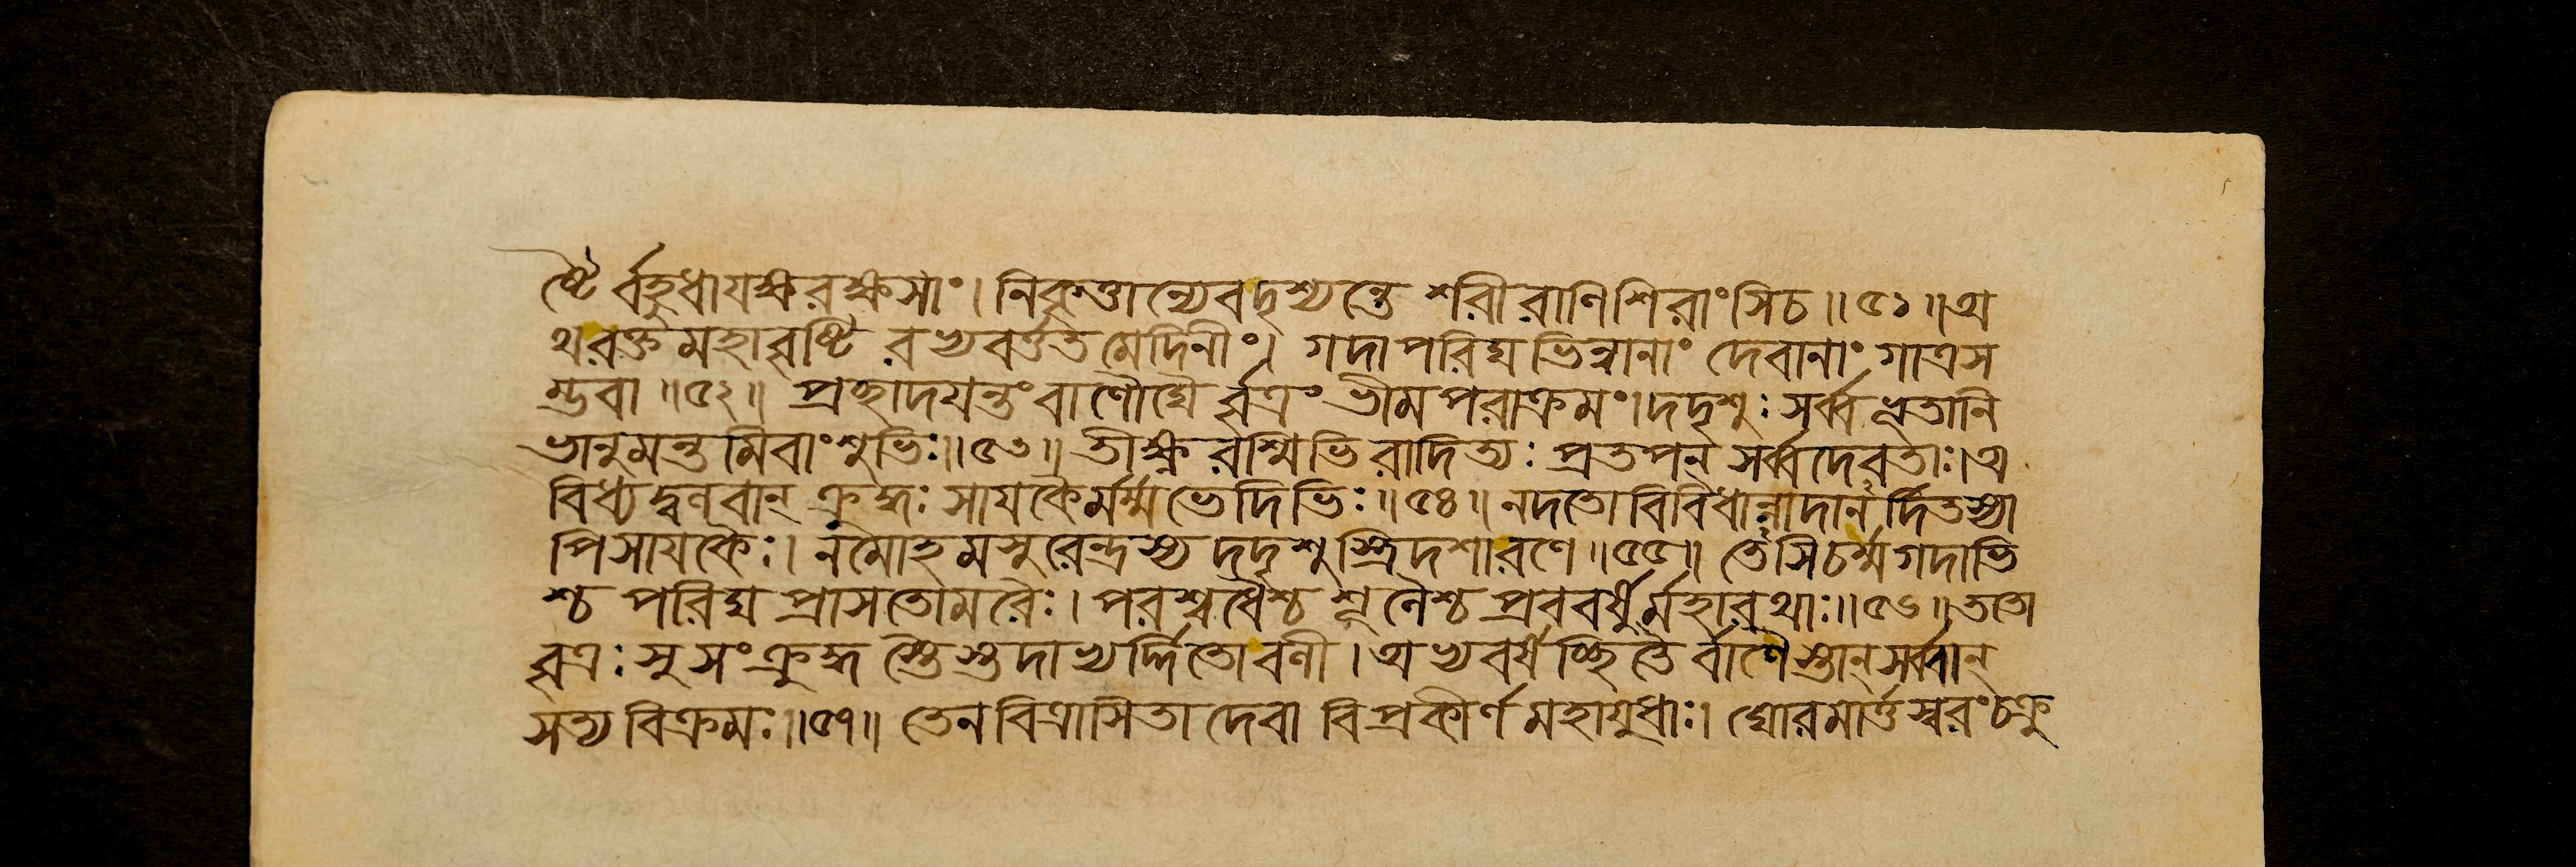 ষ্টৈর্বহুধাযক্ষরক্ষসাং। নিকৃত্তান্যেবদৃশ্যন্তে শরীরাণিশিরাংসিচ॥৫১॥অ
থরক্তমহাবৃষ্টি রখবর্ত্তত মেদিনীং। গদাপরিঘভিন্নানাং দেবানাং গাত্রস
ম্ভবা॥৫২॥ প্রচ্ছাদযন্তং বাণৌঘৈর্বৃত্রং ভীমপরাক্রমং।দদৃশুঃ সর্ব্বভূতানি
ভানুমন্তমিবাংশুভিঃ॥৫৩॥ তীক্ষ্ণরশ্মিভিরাদিত্যঃ প্রতপন্ সর্ব্বদেবতাঃ।অ
বিধ্যদ্বলবান্ ক্রুদ্ধঃ সাযকৈর্মর্ম্মভেদিভিঃ॥৫৪॥ নদতো বিবিধান্নাদানর্দিতস্যা
পিসাযকৈঃ। নমোহমসুরেন্দ্রস্য দদৃশুস্ত্রিদশারণে॥৫৫॥ তেঽসিচর্ম্মগদাভি
শ্চ পরিঘ প্রাসতোমরৈঃ। পরশ্বধৈশ্চ শূলৈশ্চ প্রববর্ষুর্মহারথাঃ॥৫৬॥ততো
বৃত্রঃ সুসংক্রুদ্ধ স্তৈস্তদাভ্যর্দ্দিতোবলী। অভ্যবর্ষচ্ছিতৈর্বাণৈস্তান্ সর্ব্বান্
সত্যবিক্রমঃ॥৫৭॥ তেনবিত্রাসিতা দেবা বিপ্রকীর্ণমহাযুধাঃ। ঘোরমার্ত্তস্বরং চক্রু